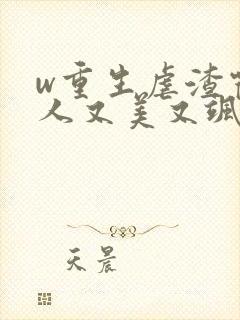 w重生虐渣
人又美又飒
天晨